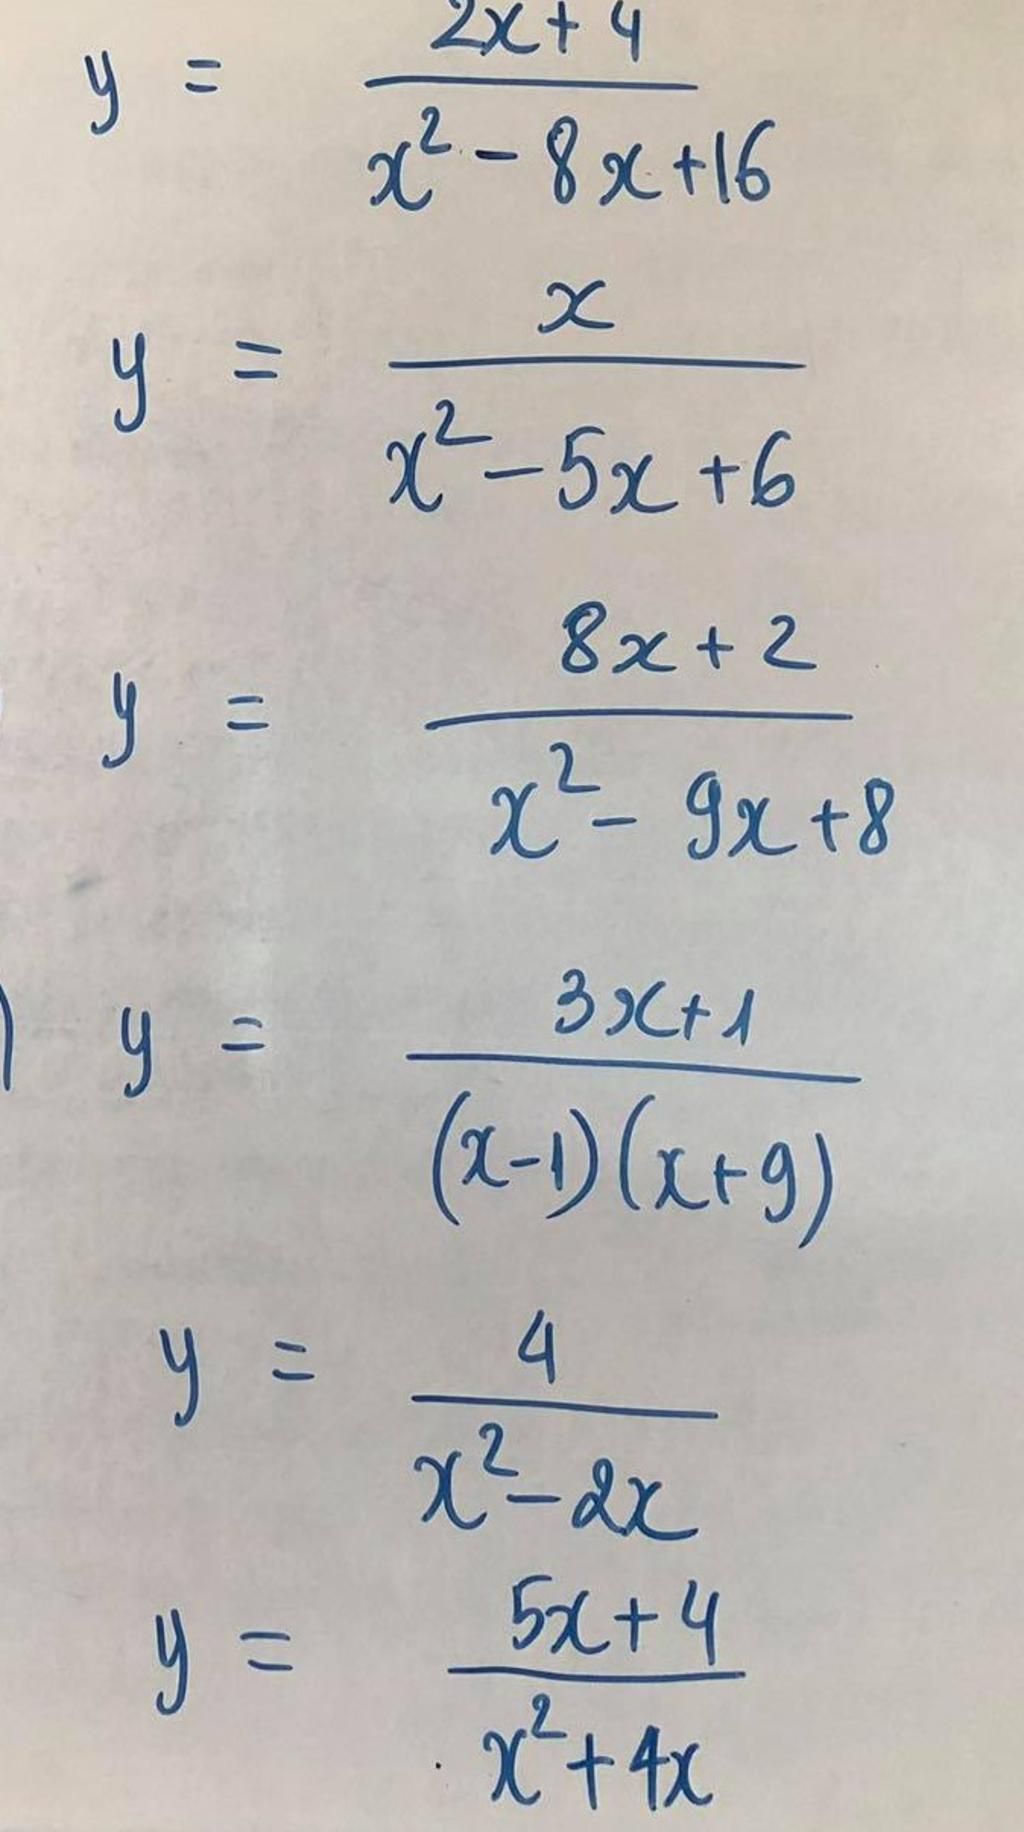 y = 2x + 4 / x² - 8x + 16
y = x / x² - 5x + 6
y = 8x + 2 / x² - 9x + 8
) y = 3x + 1 / (x-1)(x+9)
y = 4 / x² - 2x
y = 5x + 4 / x² + 4x